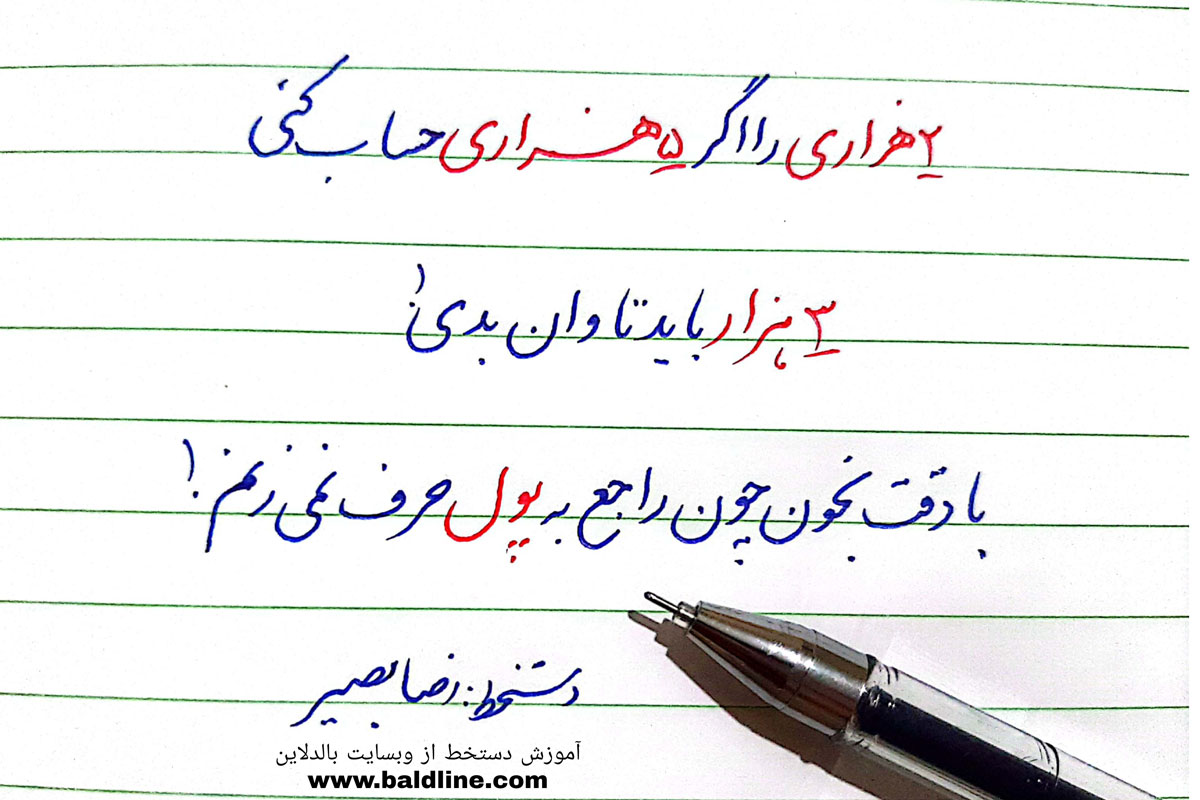 ۲ هزاری را اگر ۵ هزاری حساب کنی
۳ هزار باید تاوان بدی!
با دقت بخون چون راجع به پول حرف نمی زنم!
دستخط: رضا بصیر
آموزش دستخط از وبسایت بالدلاین
www.baldline.com